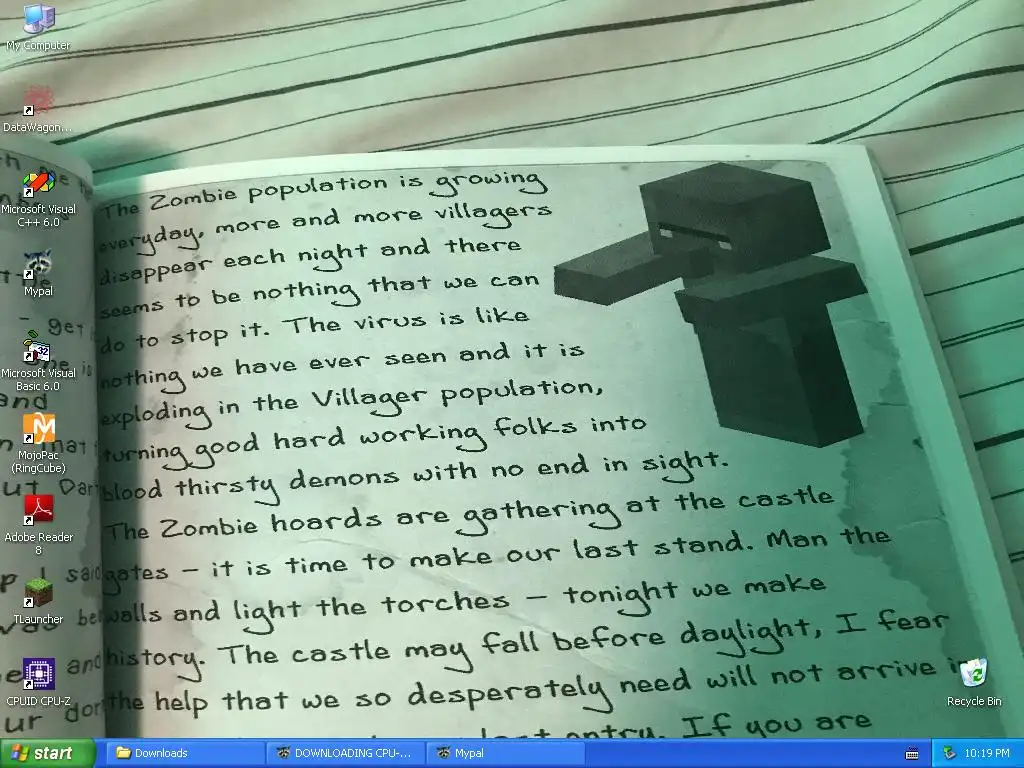 My Computer
DataWagon...
Microsoft Visual
C++ 6.0
Mypal
Microsoft Visual
Basic 6.0
MojoPac
(RingCube)
Adobe Reader
8
TLauncher
CPUID CPU-Z
The Zombie population is growing
everyday, more and more villagers
disappear each night and there
seems to be nothing that we can
do to stop it. The virus is like
nothing we have ever seen and it is
exploding in the Villager population,
turning good hard working folks into
blood thirsty demons with no end in sight.
The Zombie hoards are gathering at the castle
gates – it is time to make our last stand. Man the
walls and light the torches – tonight we make
history. The castle may fall before daylight, I fear
the help that we so desperately need will not arrive
entry. If you are
Recycle Bin
start
Downloads
DOWNLOADING CPU-...
Mypal
10:19 PM